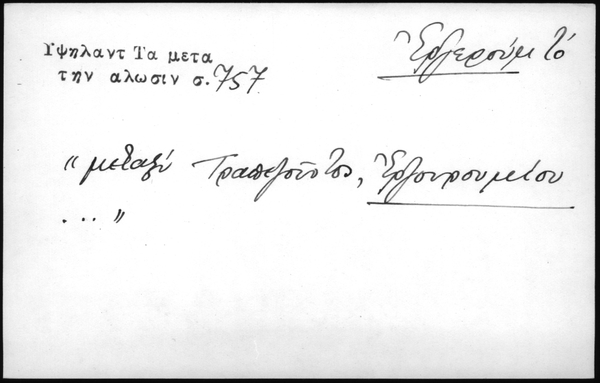 Υψηλαντ Τα μετα
την αλωσιν σ. 757
Ἐρζερούμ τό
"μεταξύ Τραπεζοῦντος, Ἐρζουρουμίου
... "